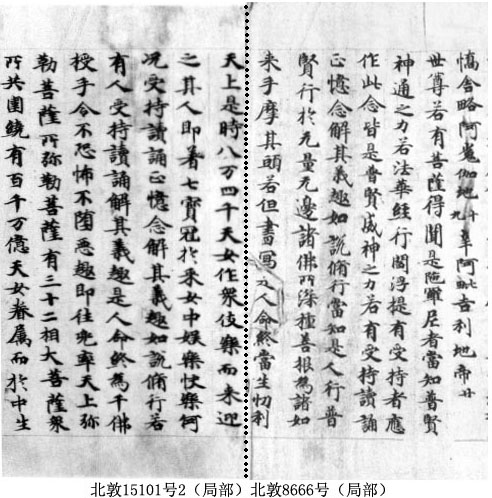 憍舍略阿㝹伽地十九辛阿毗吉利地帝廿
世尊若有菩薩得聞是陁羅尼者當知普賢
神通之力若法華經行閻浮提有受持者應
作此念皆是普賢威神之力若有受持讀誦
正憶念解其義趣如說脩行當知是人行普
賢行於无量无邊諸佛所深種善根為諸如
来手摩其頭若但書寫人命終當生忉利
天上是時八万四千天女作眾伎樂而来迎
之其人即著七寶冠於采女中娛樂快樂何
况受持讀誦正憶念解其義趣如說脩行若
有人受持讀誦解其義趣是人命終為千佛
授手令不恐怖不墮惡趣即往兜率天上弥
勒菩薩所弥勒菩薩有三十二相大菩薩眾
所共圍繞有百千万億天女眷屬而於中生
北敦15101号2（局部）北敦8666号（局部）